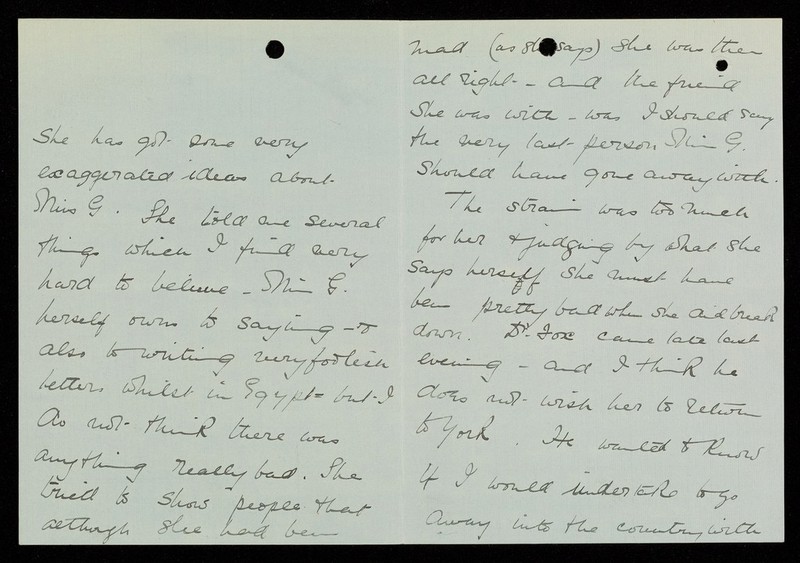 She has got some very
exaggerated ideas about
Miss G. She told me several
things which I find very
hard to believe - Miss G.
herself owns to saying - &
also to writing very foolish
letters whilst in Egypt - but I
do not think there was
anything really bad. She
tried to show people that
although she had been
mad (as she says) she was then
all right - and the friend
she was with - was I should say
the very last person Miss G.
should have gone away with.
The strain was too much
for her & judging by what she
says herself she must have
been pretty bad when she did break
down. Dr. Fox came late last
evening - and I think he
does not wish her to return
to York. He wanted to know
if I would undertake to go
away into the country with